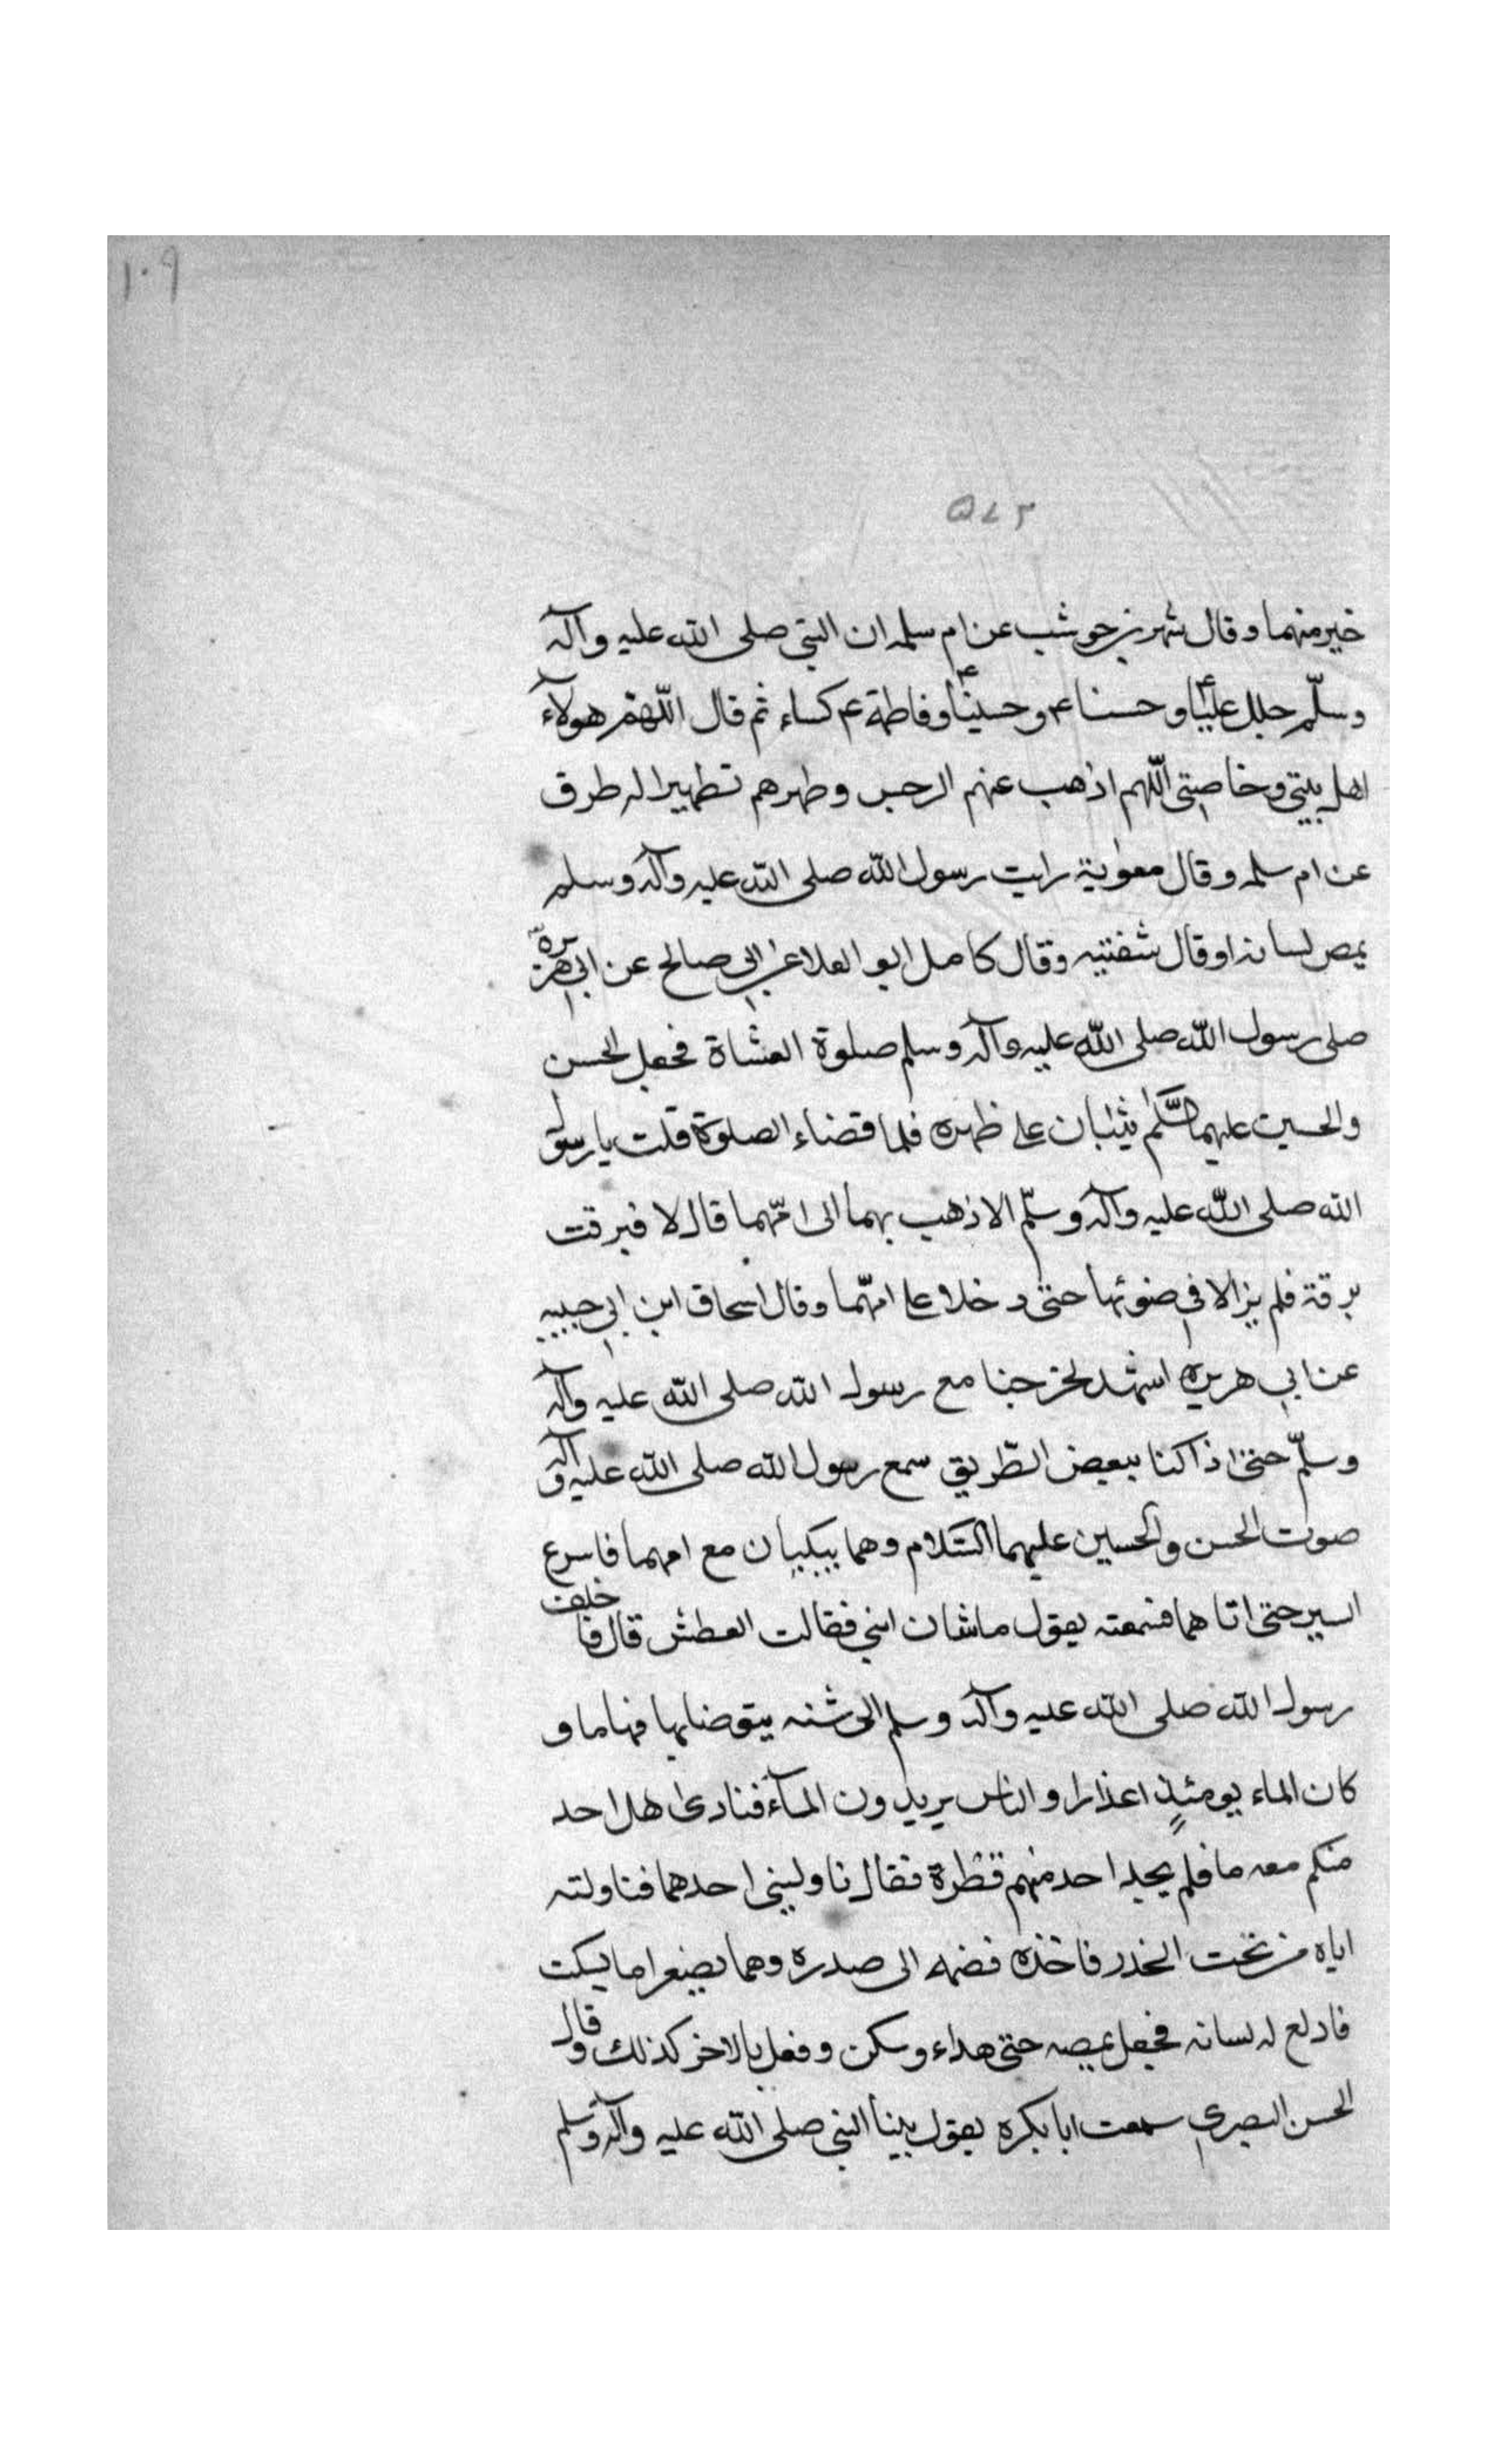 ١٠٩
٥٧٢
خير منهما وقال شهر بن حوشب عن ام سلمه ان النبي صلى الله عليه وآله
وسلّم جلل عليّا ع وحسنا ع وحسينا ع وفاطمة ع كساء ثم قال اللّهم هولآء
اهل بيتي وخاصتي اللّهم اذهب عنهم الرجس وطهرهم تطهيرا له طرق
عن ام سلمه وقال معوية رايت رسول الله صلى الله عليه وآله وسلم
يمص لسانه او قال شفتيه وقال كامل ابو العلا عن ابي صالح عن ابي هريرة
صلى رسول الله صلى الله عليه وآله وسلم صلوة العشاة فجعل الحسن
والحسين عليهما السّلم يثبان على ظهره فلما قضاء الصلوة قلت يا رسول
الله صلى الله عليه وآله وسلّم الا اذهب بهما الى امّهما قال لا فبرقت
برقة فلم يزالا في ضوئها حتى دخلا على امّهما وقال اسحاق ابن ابي حبيبه
عن ابي هريره اشهد لخرجنا مع رسول الله صلى الله عليه وآله
وسلّم حتى اذا كنا ببعض الطّريق سمع رسول الله صلى الله عليه وآله
صوت الحسن والحسين عليهما السّلام وهما يبكيان مع امهما فاسرع
السير حتى اتاهما فسمعته يقول ما شان ابني فقالت العطش قال فاخلف
رسول الله صلى الله عليه وآله وسلم الى شنه يتوضا بها فيها ما و
كان الماء يومئذٍ اعذارا والناس يريدون المآء فنادى هل احد
منكم معه ما فلم يجد احد منهم قطرة فقال ناوليني احدهما فناولته
اياه من تحت الخدر فاخذه فضمه الى صدره وهما يضغوا ما يسكت
فادلع له لسانه فجعل يمصه حتى هداء وسكن وفعل بالاخر كذلك وقال
الحسن البصري سمعت ابا بكره يقول بينا النبي صلى الله عليه وآله وسلم